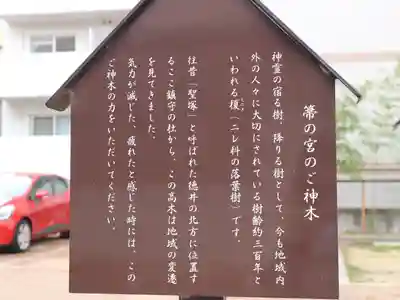 箒の宮のご神木
神霊の宿る樹、降りる樹として、今も地域内
外の人々に大切にされている樹齢約三百年と
いわれる榎（ニレ科の落葉樹）です。
往昔「聖塚」と呼ばれた徳井の北方に位置す
るここ鎮守の杜から、この高木は地域の変遷
を見てきました。
気力が滅じた、疲れたと感じた時には、この
ご神木の力をいただいてください。